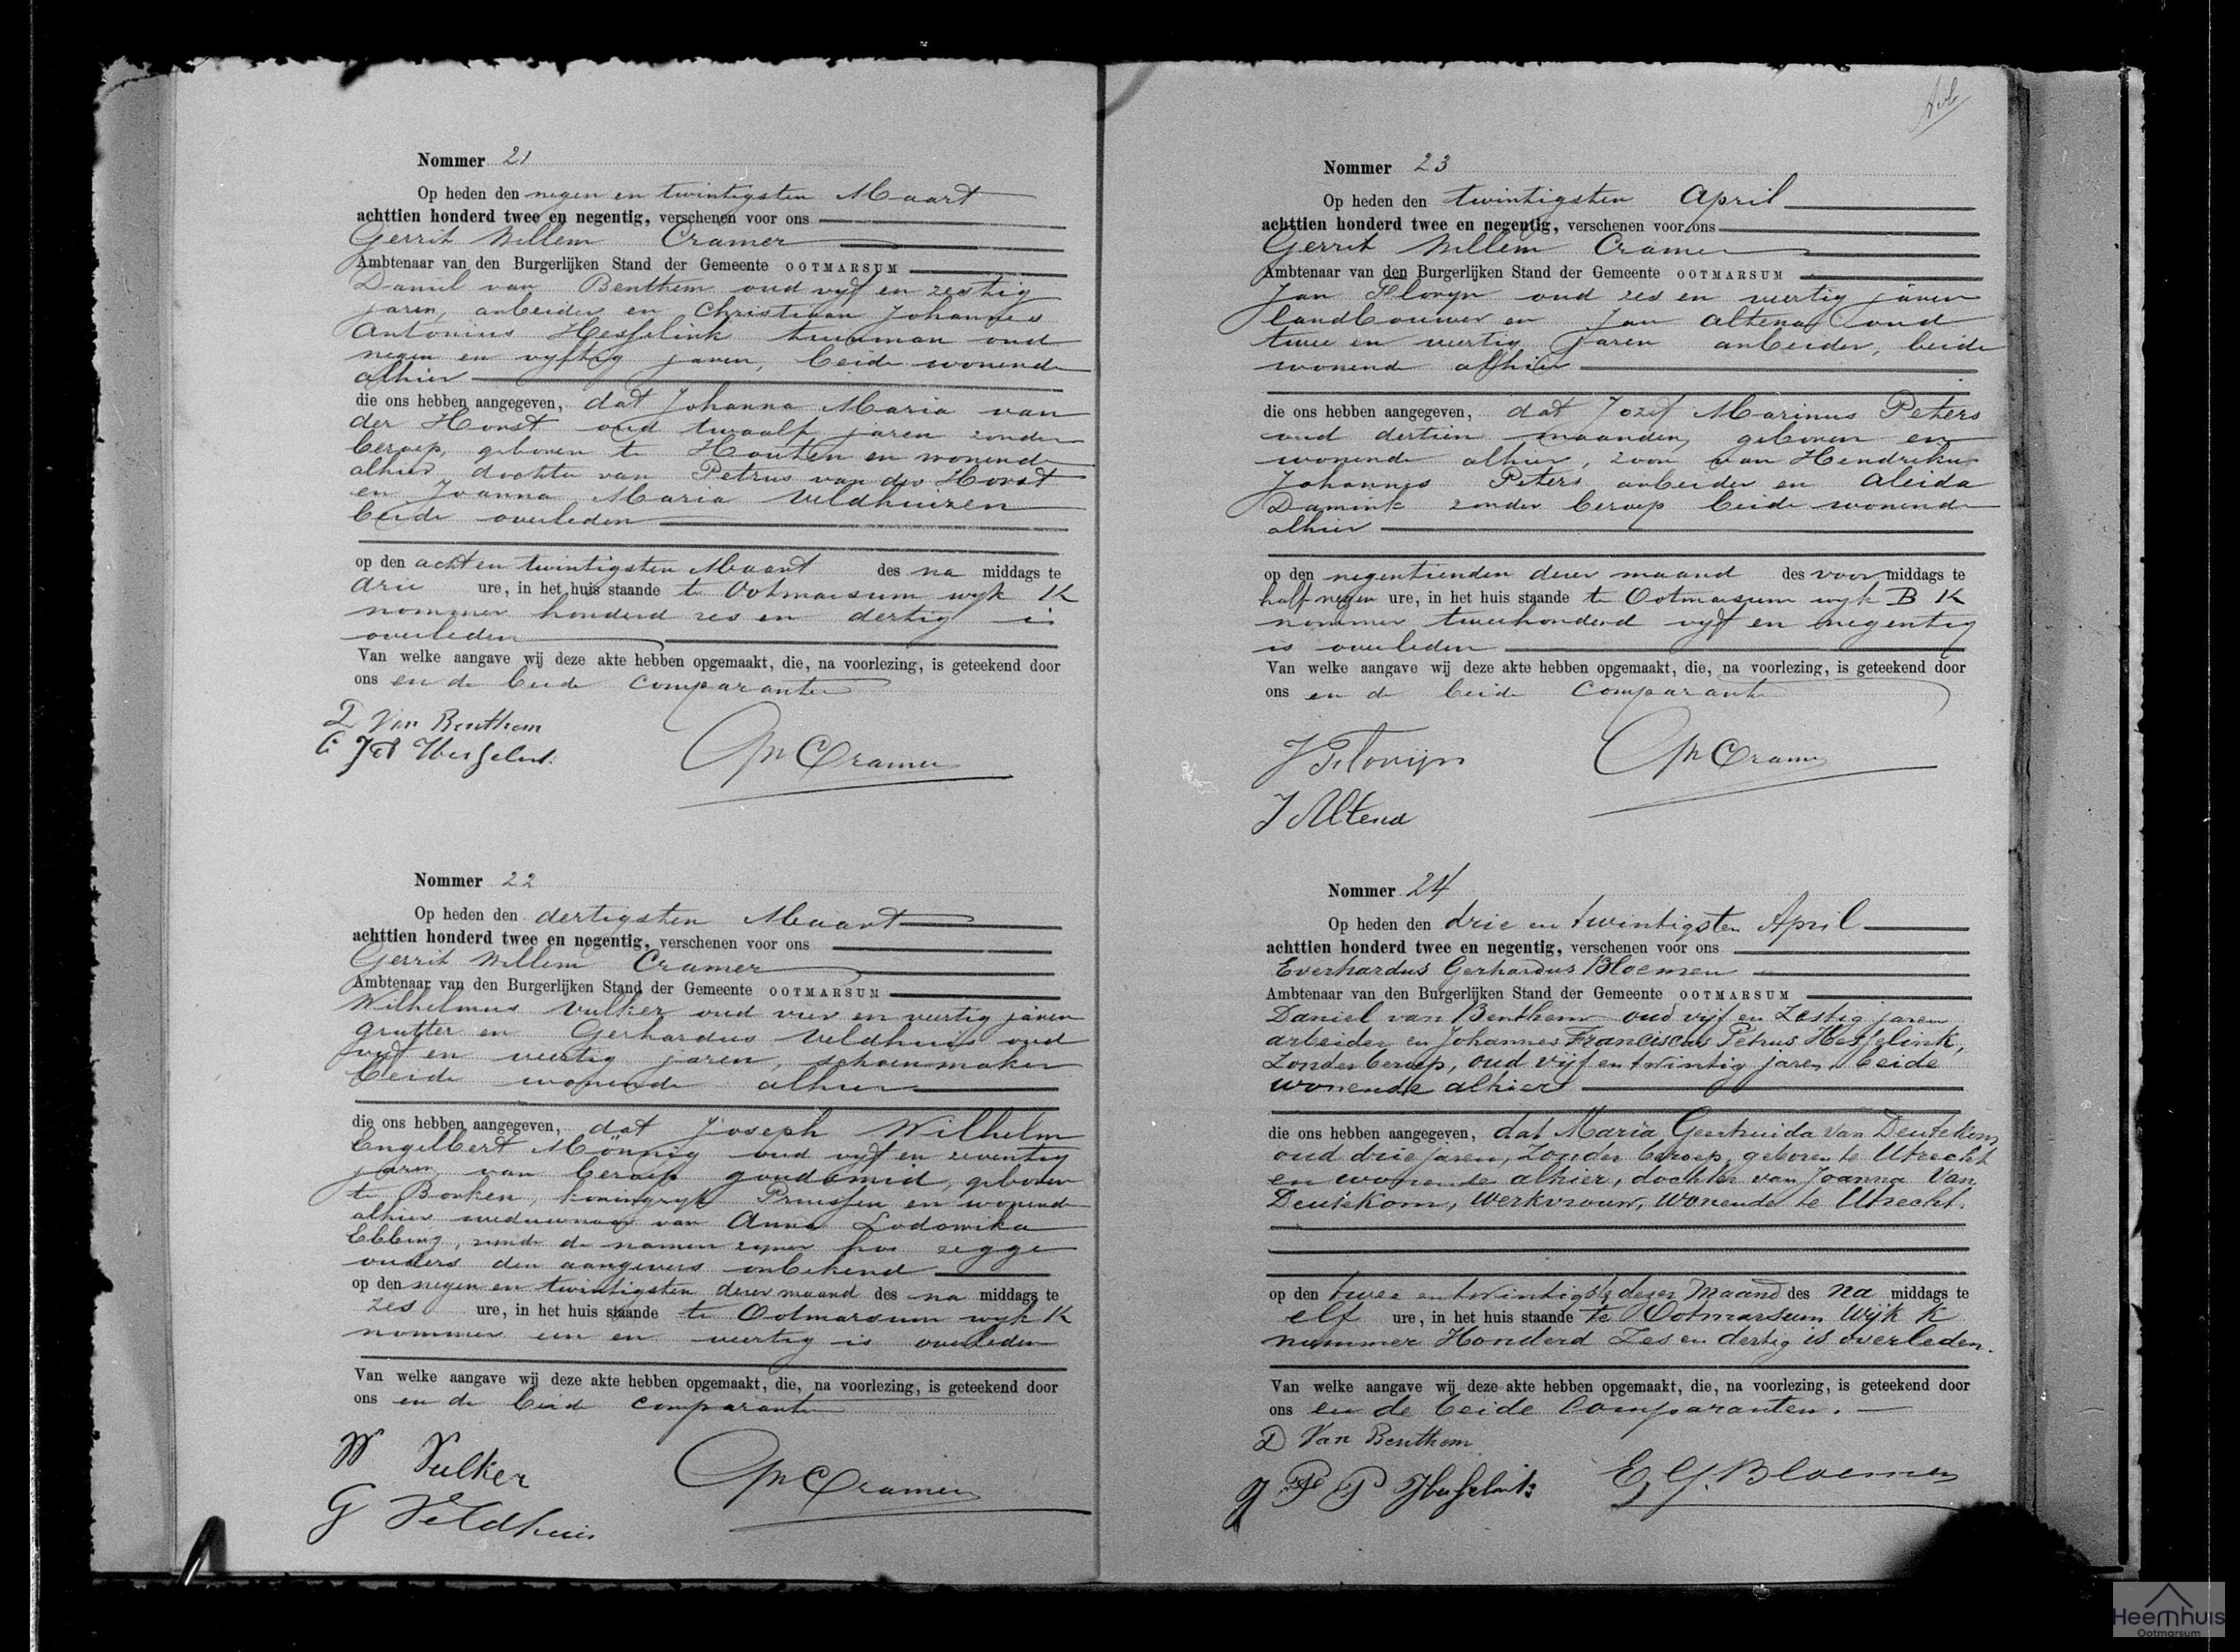 Nommer 21
Op heden den negen en twintigsten Maart
achttien honderd twee en negentig, verschenen voor ons
Gerrit Willem Cramer
Ambtenaar van den Burgerlijken Stand der Gemeente OOTMARSUM
Daniel van Benthem oud vyf en zestig
jaren, arbeider en Christiaan Johannes
Antonius Hesselink tuinman oud
negen en vyftig jaren, beide wonende
alhier
die ons hebben aangegeven, dat Johanna Maria van
der Horst oud twaalf jaren zonder
beroep, geboren te Houten en wonende
alhier dochter van Petrus van der Horst
en Joanna Maria Veldhuizen
beide overleden
op den acht en twintigsten Maart des na middags te
drie ure, in het huis staande te Ootmarsum wyk K
nommer honderd zes en dertig is
overleden
Van welke aangave wij deze akte hebben opgemaakt, die, na voorlezing, is geteekend door
ons en de beide comparanten
D Van Benthem
GWCramer
Nommer 22
Op heden den dertigsten Maart
achttien honderd twee en negentig, verschenen voor ons
Gerrit Willem Cramer
Ambtenaar van den Burgerlijken Stand der Gemeente OOTMARSUM
Wilhelmus Vulker oud vier en veertig jaren
grutter en Gerhardus Veldhuis oud
vyf en veertig jaren, schoenmaker
beide wonende alhier
die ons hebben aangegeven, dat Joseph Wilhelm
Engelbert Mönnig oud vyf en zeventig
jaren, van beroep goudsmid, geboren
te Borken, koningryk Pruissen en wonende
alhier weduwnaar van Anna Lodowika
Ebbing, zynde de namen zyner segge
ouders den aangevers onbekend
op den negen en twintigsten dezer maand des na middags te
zes ure, in het huis staande te Ootmarsum wyk K
nommer een en veertig is overleden
Van welke aangave wij deze akte hebben opgemaakt, die, na voorlezing, is geteekend door
ons en de beide comparanten
W Vulker
GWCramer
G Veldhuis
Nommer 23
Op heden den twintigsten April
achttien honderd twee en negentig, verschenen voor ons
Gerrit Willem Cramer
Ambtenaar van den Burgerlijken Stand der Gemeente OOTMARSUM
Jan Floryn oud zes en veertig jaren
landbouwer en Jan Altena oud
twee en veertig jaren arbeider, beide
wonende alhier
die ons hebben aangegeven, dat Jozef Marinus Peters
oud dertien maanden, geboren en
wonende alhier, zoon van Hendrikus
Johannes Peters arbeider en Aleida
Damink zonder beroep beide wonende
alhier
op den negentienden dezer maand des voor middags te
half negen ure, in het huis staande te Ootmarsum wyk B K
nommer tweehonderd vyf en negentig
is overleden
Van welke aangave wij deze akte hebben opgemaakt, die, na voorlezing, is geteekend door
ons en de beide comparanten
J Florijn
GWCramer
J Altena
Nommer 24
Op heden den drie en twintigsten April
achttien honderd twee en negentig, verschenen voor ons
Everhardus Gerhardus Bloemen
Ambtenaar van den Burgerlijken Stand der Gemeente OOTMARSUM
Daniel van Benthem oud vijf en Zestig jaren
arbeider en Johannes Franciscus Petrus Hesselink,
Zonder beroep, oud vijf en twintig jaren beide
wonende alhier
die ons hebben aangegeven, dat Maria Geertruida van Deutekom
oud drie jaren, Zonder beroep, geboren te Utrecht
en wonende alhier, dochter van Joanna Van
Deutekom, werkvrouw, wonende te Utrecht.
op den twee en twintigste dezer Maand des na middags te
elf ure, in het huis staande te Ootmarsum Wijk K
nummer Honderd Zes en dertig is overleden.
Van welke aangave wij deze akte hebben opgemaakt, die, na voorlezing, is geteekend door
ons en de beide Comparanten.
D Van Benthem
J F P Hesselink
E.G. Bloemen
Heemhuis
Ootmarsum